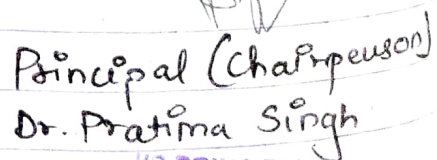 Principal (Chairperson)
Dr. Pratima Singh